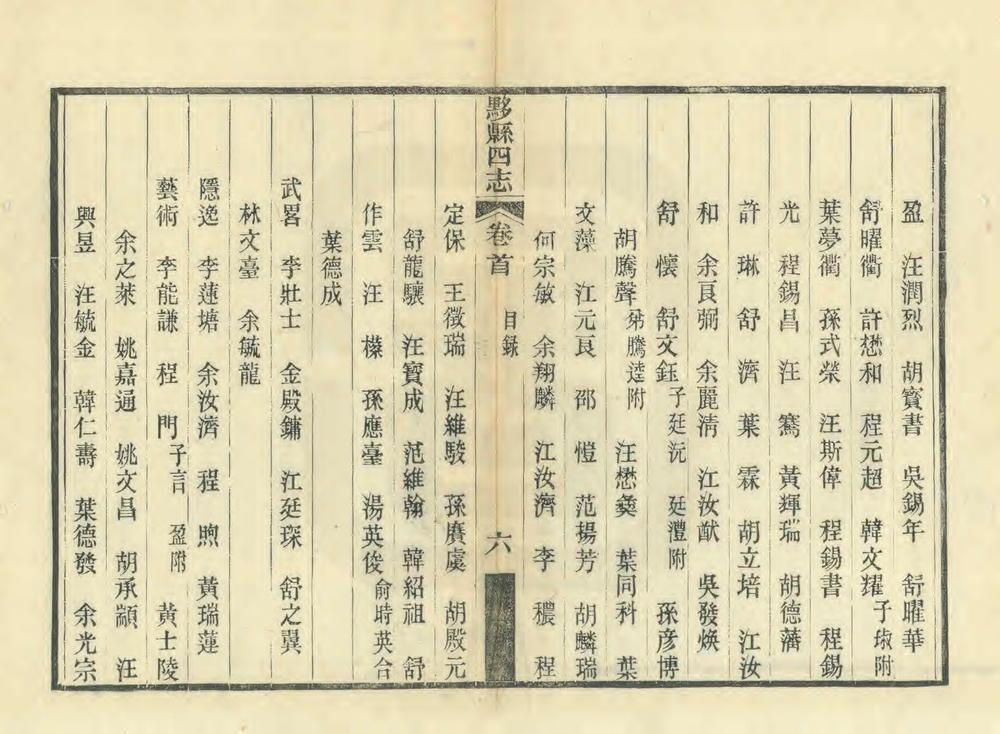 盈 汪潤烈 胡寶書 吳錫年 舒曜華
舒曜衢 許懋和 程元超 韓文耀子琡附
葉夢衢 孫式榮 汪斯偉 程錫書 程錫
光 程錫昌 汪騫 黃輝瑞 胡德藩
許琳 舒濟 葉霖 胡立培 江汝
和 余良弼 余麗清 江汝猷 吳發煥
舒懷 舒文鈺子廷沅 廷澧附 孫彥博
胡騰聲弟騰逵附 汪懋羹 葉同科 葉
文藻 江元良 邵愷 范揚芳 胡麟瑞
何宗敏 余翔麟 江汝濟 李穠 程
黟縣四志 卷首 目錄 六
定保 王徵瑞 汪維駿 孫賡虞 胡殿元
舒龍驤 汪寶成 范維翰 韓紹祖 舒
作雲 汪榤 孫應臺 湯英俊俞時英合
葉德成
武畧 李壯士 金殿鏞 江廷琛 舒之翼
林文臺 余毓龍
隱逸 李蓮塘 余汝濟 程煦 黃瑞蓮
藝術 李能謙 程門子言 盈附 黃士陵
余之萊 姚嘉通 姚文昌 胡承顓 汪
興昱 汪毓金 韓仁壽 葉德發 余光宗